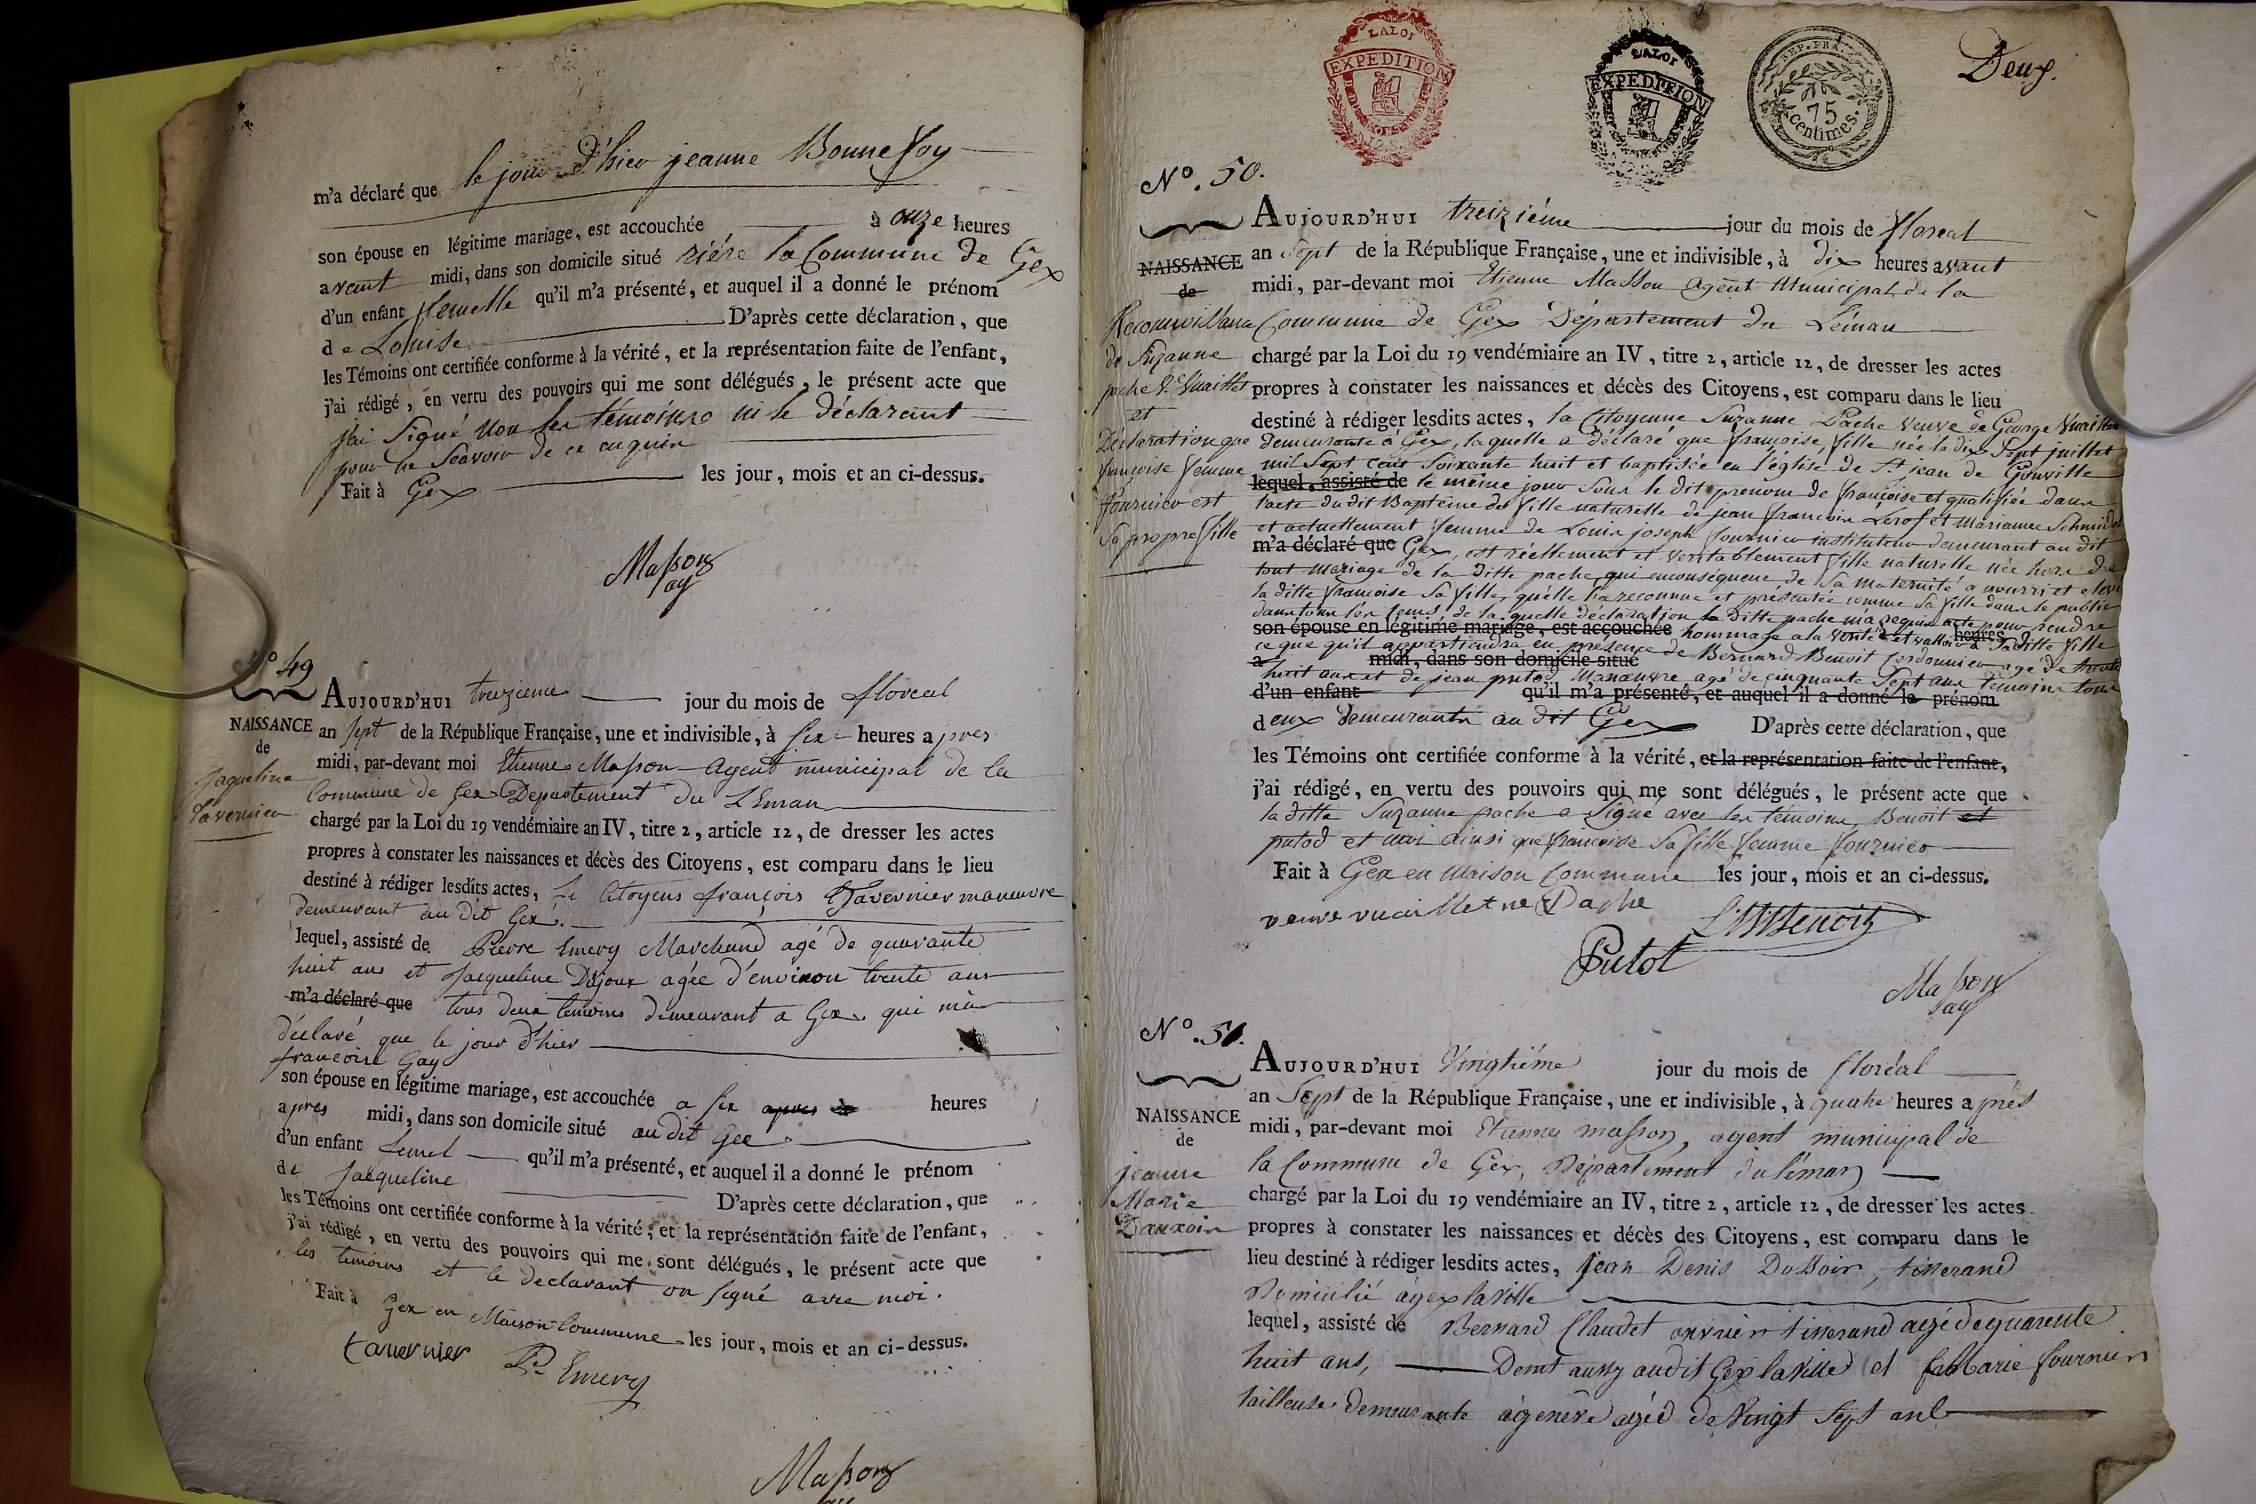 m'a déclaré que le jour d'hier jeanne Bonnefoy
son épouse en légitime mariage, est accouchée à onze heures
avant midi, dans son domicile situé riére la Commune de Gex
d'un enfant femelle qu'il m'a présenté, et auquel il a donné le prénom
de Louise D'après cette déclaration, que
les Témoins ont certifiée conforme à la vérité, et la représentation faite de l'enfant,
j'ai rédigé, en vertu des pouvoirs qui me sont délégués, le présent acte que
j'ai Signé non les témoins ni le déclarant
pour ne Scavoir de ce enquir
Fait à Gex les jour, mois et an ci-dessus.
Masson
ag
N° 49
NAISSANCE
de
Jaqueline
Tavernier
AUJOURD'HUI treizieme jour du mois de floreal
an sept de la République Française, une et indivisible, à six heures apres
midi, par-devant moi Etienne Masson Agent municipal de la
Commune de Gex Departement du Léman
chargé par la Loi du 19 vendémiaire an IV, titre 2, article 12, de dresser les actes
propres à constater les naissances et décès des Citoyens, est comparu dans le lieu
destiné à rédiger lesdits actes, le Citoyens françois Tavernier manœuvre
demeurant au dit Gex.
lequel, assisté de Pierre Emery Marchand agé de quarante
huit ans et Jacqueline Dujoux agée d'environ trente ans
m'a déclaré que tous deux temoins demeurant a Gex qui m'a
déclaré que le jour d'hier
francoise Gay
son épouse en légitime mariage, est accouchée a six apres heures
apres midi, dans son domicile situé au dit Gex
d'un enfant femel qu'il m'a présenté, et auquel il a donné le prénom
de Jacqueline D'après cette déclaration, que
les Témoins ont certifiée conforme à la vérité, et la représentation faite de l'enfant,
j'ai rédigé, en vertu des pouvoirs qui me sont délégués, le présent acte que
les temoins et le declarant on signé avec moi.
Fait à Gex en Maison Commune les jour, mois et an ci-dessus.
tavernier P. Emery
Masson
LA LOI
EXPEDITION
LA LOI
EXPEDITION
REP. FRA.
75
centimes.
Deux.
N°. 50.
NAISSANCE
de
Reconnoissance
de Suzanne
pache Ve Vuaillet
et
Déclaration que
françoise femme
fournier est
Sa propre fille
AUJOURD'HUI treiziéme jour du mois de floreal
an Sept de la République Française, une et indivisible, à dix heures avant
midi, par-devant moi Etienne Masson agent Municipal de la
Commune de Gex Département du Léman
chargé par la Loi du 19 vendémiaire an IV, titre 2, article 12, de dresser les actes
propres à constater les naissances et décès des Citoyens, est comparu dans le lieu
destiné à rédiger lesdits actes, la Citoyenne Suzanne Pache veuve de George Vuaillet
demeurante à Gex, laquelle a déclaré que françoise fille née le dix Sept juillet
mil Sept cent Soixante huit et baptisée en l'église de St jean de Gonville
lequel, assisté de le même jour Sous le dit prenom de françoise et qualifiée dans
l'acte du dit Baptême de fille naturelle de jean françois Leros et Marianne Schmid
et actuellement femme de Louis joseph fournier instituteur demeurant au dit
m'a déclaré que Gex, est réellement et veritablement fille naturelle née hors de
tout mariage de la ditte pache qui en conséquence de Sa maternité a nourri et elevé
la ditte françoise Sa fille, qu'elle l'a reconnue et présentée comme Sa fille dans le public
dans tous les tems de la quelle déclaration la Ditte pache m'a requis acte pour rendre
son épouse en légitime mariage, est accouchée hommage a la verité et valloir à Saditte fille heures
ce que qu'il appartiendra en présence de Bernard Benoit Cordonnier agé de trente
à midi, dans son domicile situé
huit ans et de jean putod Manœuvre agé de cinquante Sept ans temoins tous
d'un enfant qu'il m'a présenté, et auquel il a donné le prénom
deux demeurants au dit Gex D'après cette déclaration, que
les Témoins ont certifiée conforme à la vérité, et la représentation faite de l'enfant,
j'ai rédigé, en vertu des pouvoirs qui me sont délégués, le présent acte que
la ditte Suzanne pache a Signé avec les témoins Benoit et
putod et moi ainsi que françoise Sa fille femme fournier
Fait à Gex en Maison Commune les jour, mois et an ci-dessus.
veuve vuaillet ne Pache Benoit
Putot
Masson
ag
N°. 51.
NAISSANCE
de
jeanne
Marie
AUJOURD'HUI Vingtiéme jour du mois de floréal
an Sept de la République Française, une et indivisible, à quatre heures aprés
midi, par-devant moi Etienne masson, agent municipal de
la Commune de Gex, Département du léman
chargé par la Loi du 19 vendémiaire an IV, titre 2, article 12, de dresser les actes
propres à constater les naissances et décès des Citoyens, est comparu dans le
lieu destiné à rédiger lesdits actes, Jean Denis, tisserand
Domicilié à gex la ville
lequel, assisté de Bernard Claudet ouvrier tisserand agé de quarente
huit ans, Demt aussy audit Gex la ville et Marie fournier
tailleuse demeurante à genêve agée de Vingt Sept ans